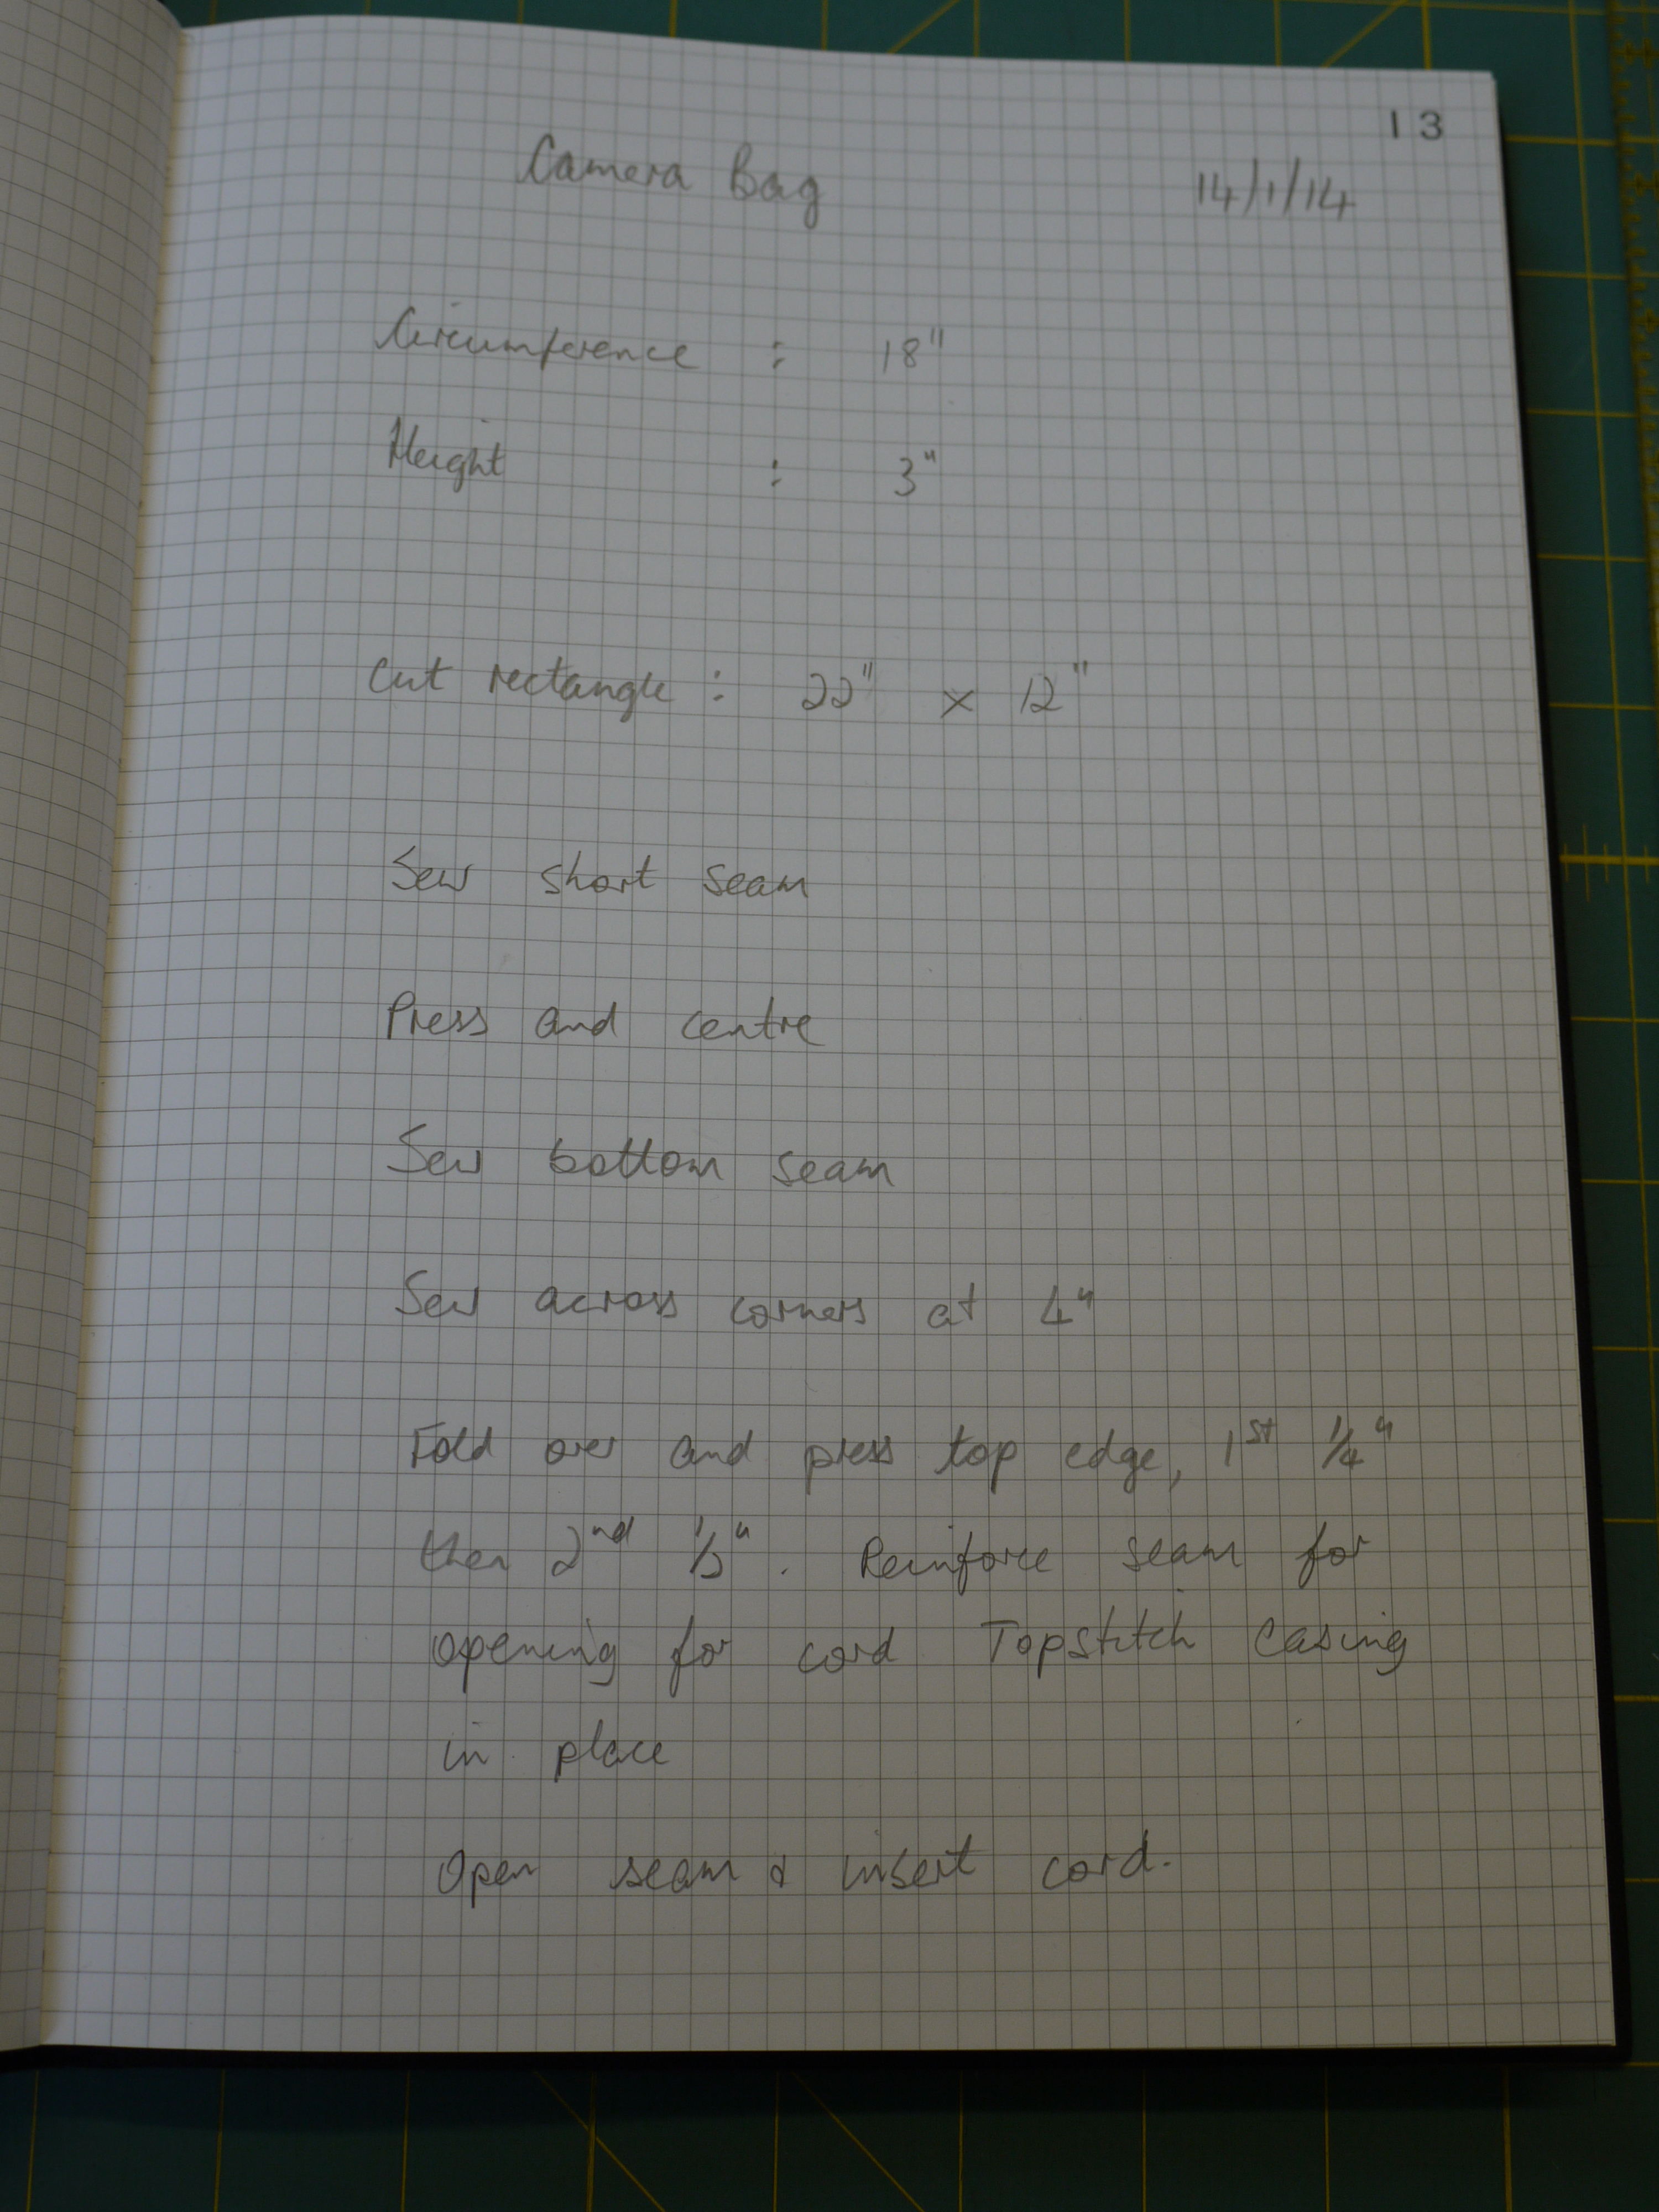 13
Camera Bag 14/1/14
Circumference : 18"
Height : 3"
Cut rectangle : 22" x 12"
Sew short seam
Press and centre
Sew bottom seam
Sew across corners at 4"
Fold over and press top edge, 1st 1/4"
then 2nd 1/2". Reinforce seam for
opening for cord. Topstitch casing
in place
Open seam & insert cord.